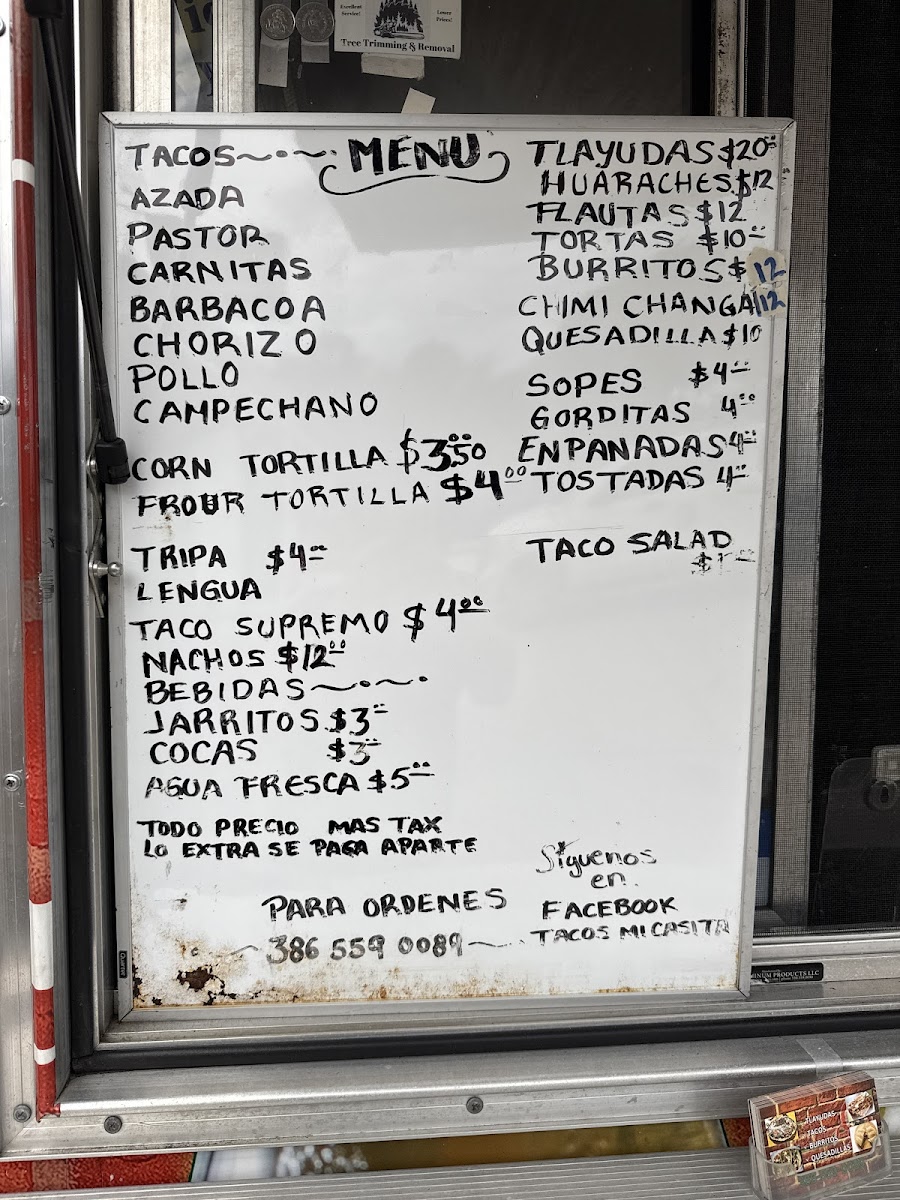 Excellent Service!
Lower Prices!
Tree Trimming & Removal
MENU
TACOS
AZADA
PASTOR
CARNITAS
BARBACOA
CHORIZO
POLLO
CAMPECHANO
CORN TORTILLA $3.50
FROUR TORTILLA $4.00
TRIPA $4
LENGUA
TACO SUPREMO $4.00
NACHOS $12.00
BEBIDAS
JARRITOS $3
COCAS $3
AGUA FRESCA $5
TODO PRECIO MAS TAX
LO EXTRA SE PAGA APARTE
PARA ORDENES
386 559 0089
TLAYUDAS $20
HUARACHES $12
FLAUTAS $12
TORTAS $10
BURRITOS $12
CHIMI CHANGA 12
QUESADILLA $10
SOPES $4
GORDITAS 4.00
ENPANADAS 4
TOSTADAS 4
TACO SALAD
Síguenos
en.
FACEBOOK
TACOS MI CASITA
Quartet
MINUM PRODUCTS LLC
TLAYUDAS
TACOS
BURRITOS
QUESADILLAS